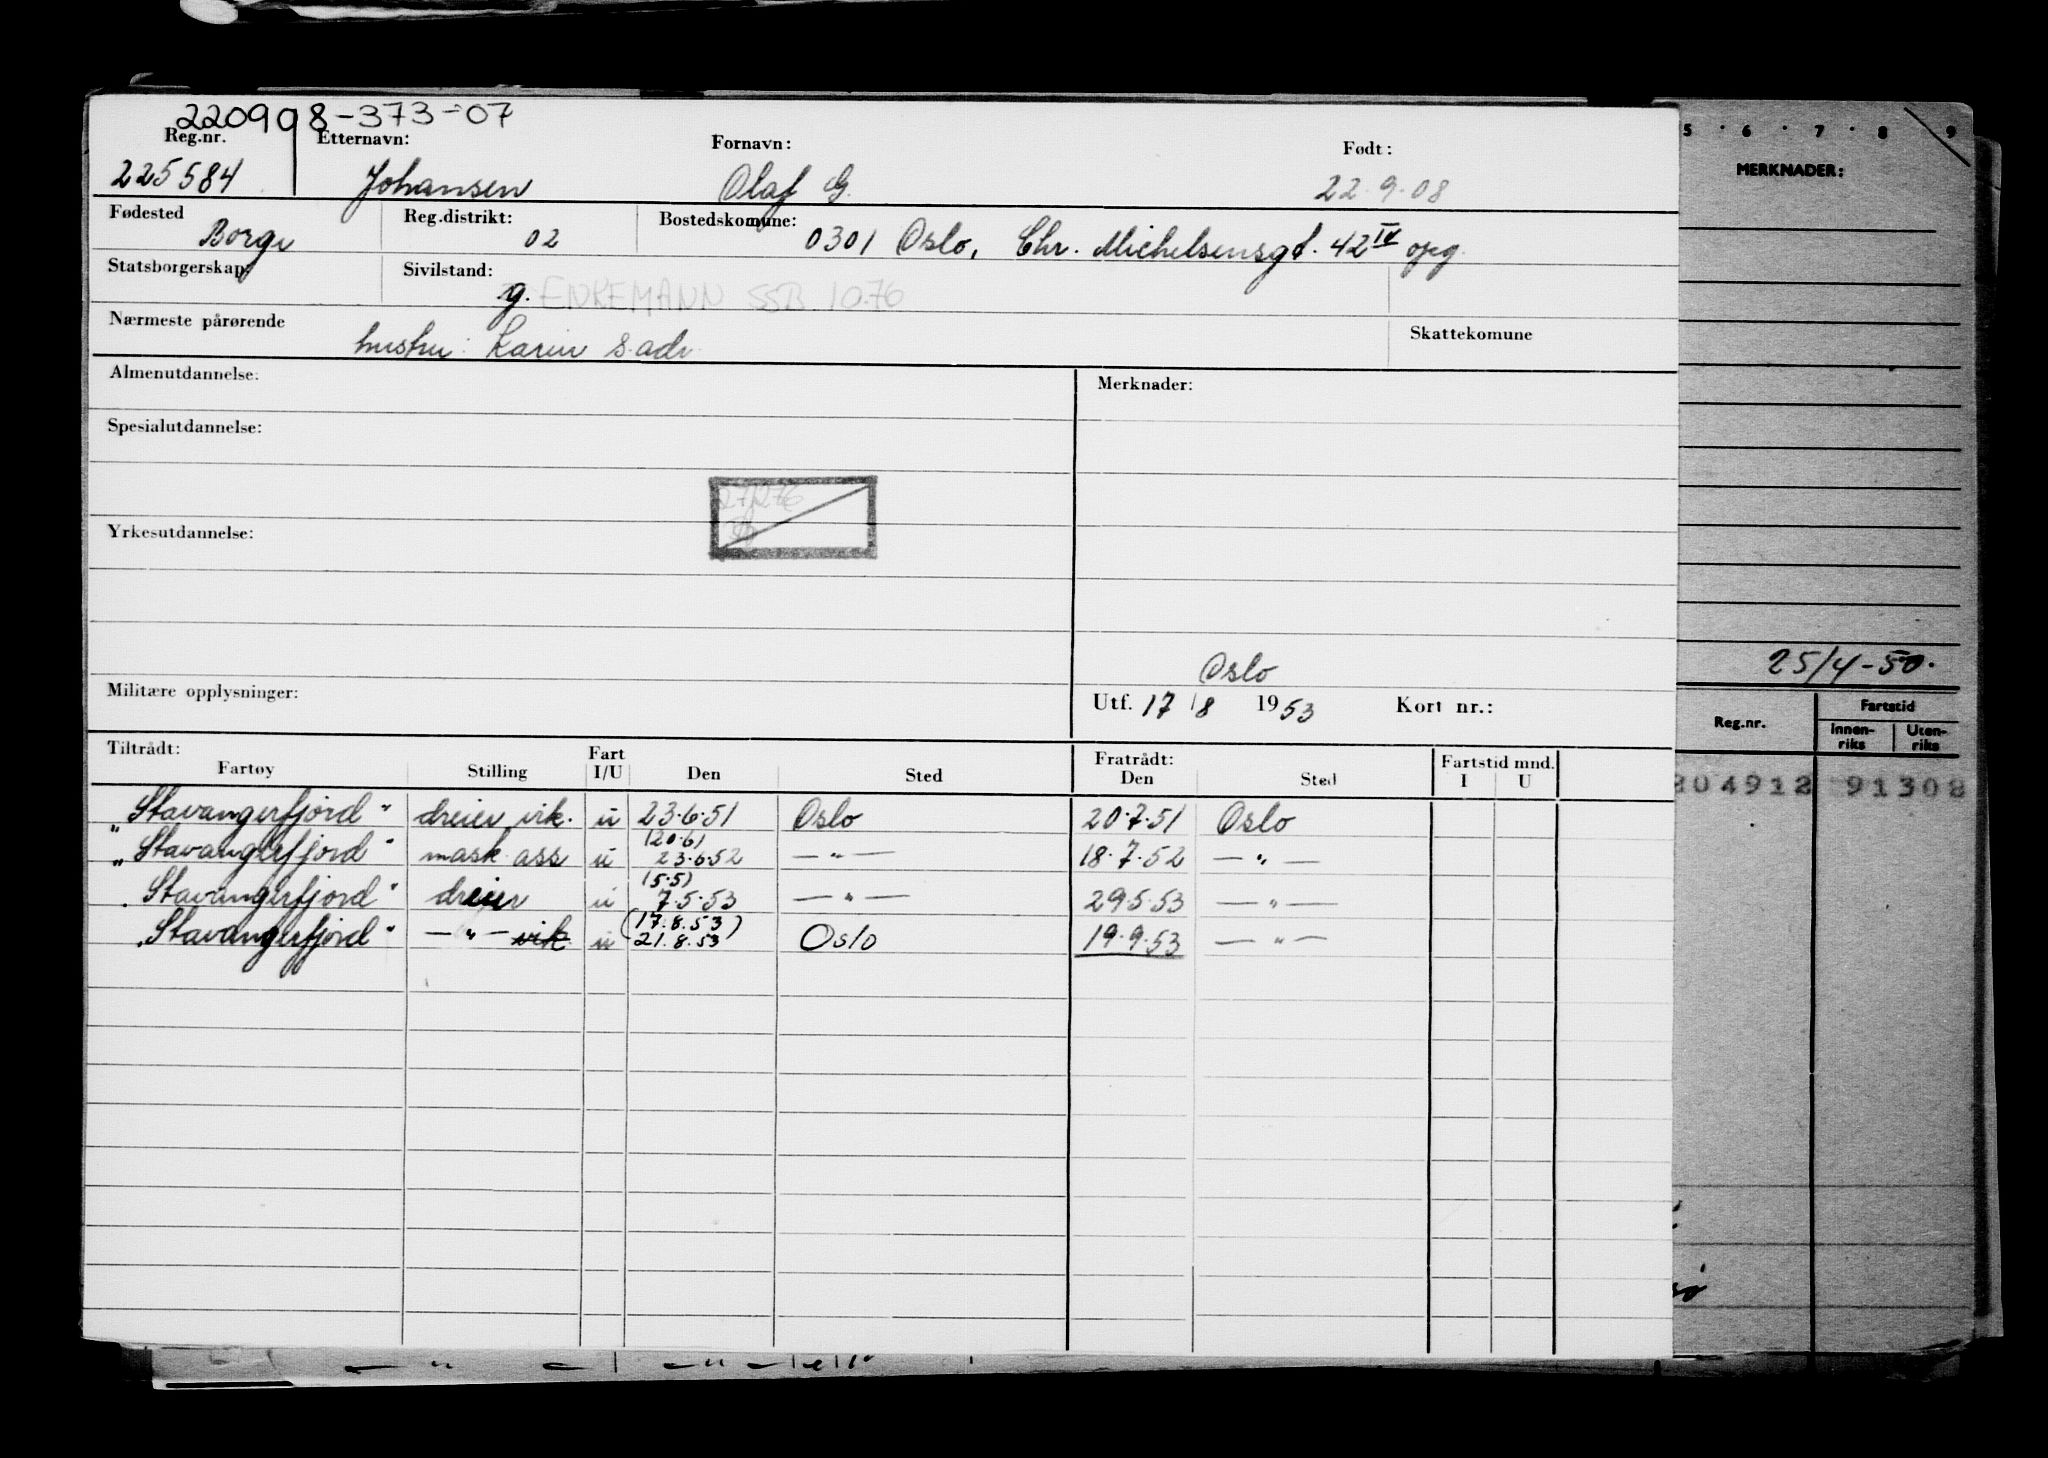 220908-373-07
Reg.nr. Etternavn: Fornavn: Født:
225584 Johansen Olaf G. 22.9.08
Fødested Reg.distrikt: Bostedskomune:
Borge 02 0301 Oslo, Chr. Michelsensgt. 42 IV opg.
Statsborgerskap: Sivilstand:
g. ENKEMANN SSB 10.76
Nærmeste pårørende Skattekomune
hustru: Karin s.adr.
Almenutdannelse: Merknader:
Spesialutdannelse:
Yrkesutdannelse:
Oslo
Militære opplysninger: Utf. 17/8 1953 Kort nr.:
Tiltrådt: Fart Fratrådt: Fartstid mnd.
Fartøy Stilling I/U Den Sted Den Sted I U
"Stavangerfjord" dreier vik. u 23.6.51 Oslo 20.7.51 Oslo
(20.6)
"Stavangerfjord" mask ass u 23.6.52 — " — 18.7.52 — " —
(5.5)
"Stavangerfjord" dreier u 7.5.53 — " — 29.5.53 — " —
(17.8.53)
"Stavangerfjord" — " — vik. u 21.8.53 Oslo 19.9.53 — " —
5 · 6 · 7 · 8 9
MERKNADER:
25/4-50.
Reg.nr. Fartstid
innen-riks Uten-riks
804912 91308